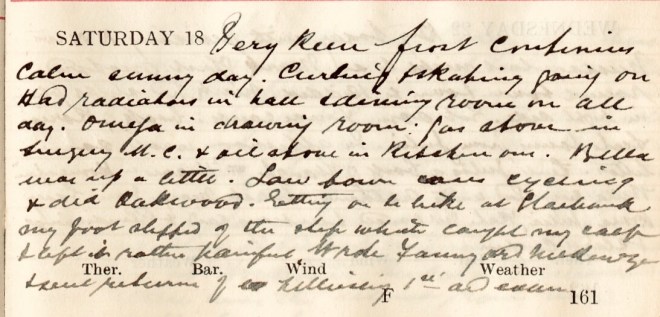 SATURDAY 18 Very keen frost continues
Calm sunny day. Curling & skating going on
Had radiators in hall & dining room on all
day. Omega in drawing room: gas stove in
Surgery W.C. & oil stove in Kitchen one. Bella
was up a little. Saw town cycling
& did Oakwood. Getting on to bike at
my foot slipped of the step which caught my calf
& left it rather painful Wrote Fanny
Ther. Bar. Wind Weather
& sent returns of 1st aid exam
F 161